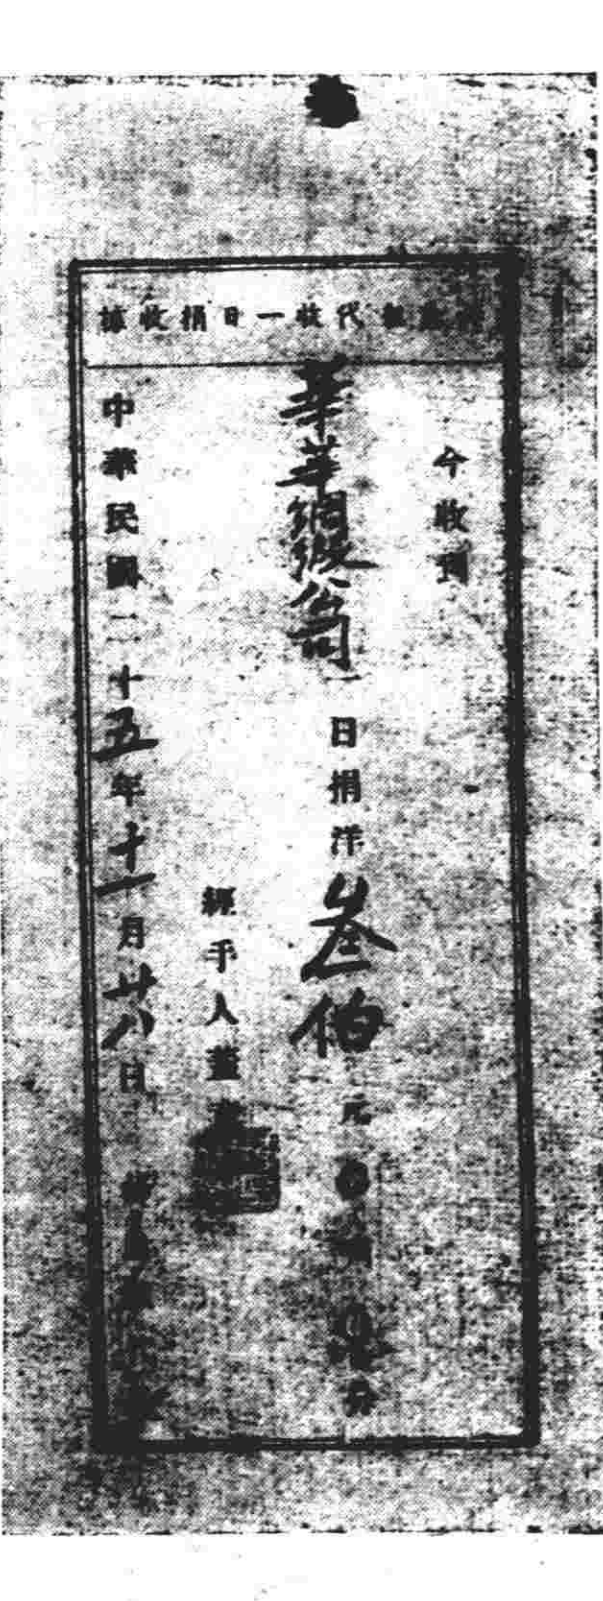 代收一日捐收據
今收到
華華綢緞公司一日捐洋叁佰元
分
經手人董
中華民國二十五年十一月廿八日